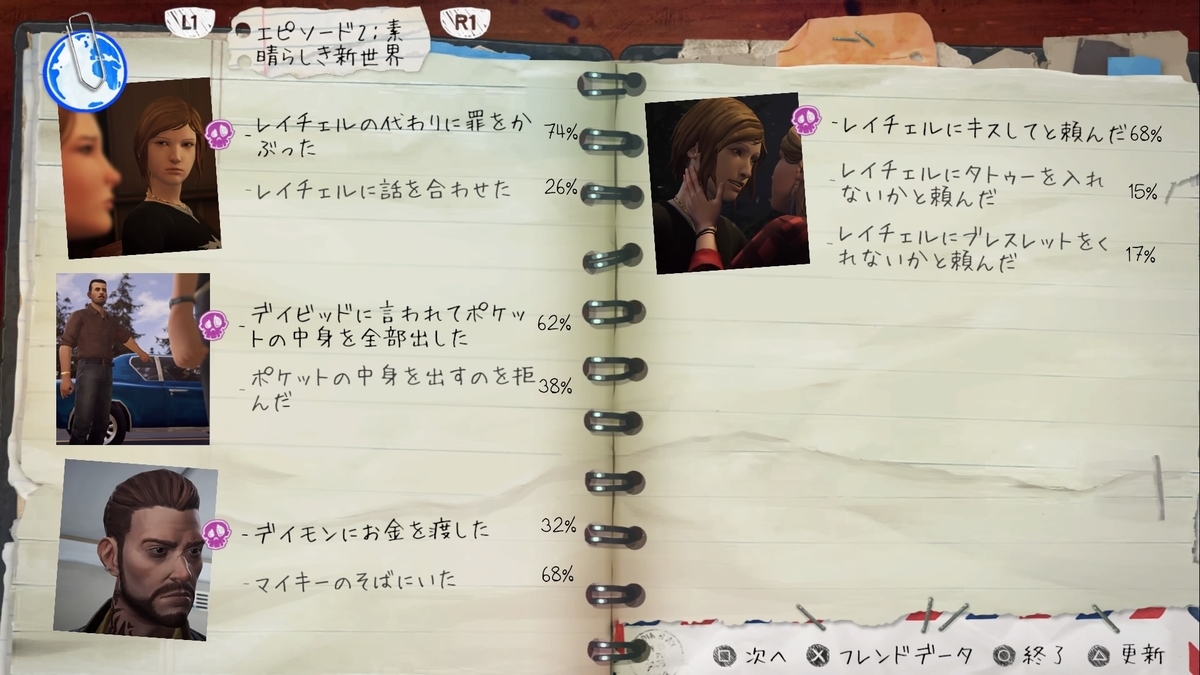 L1
エピソード2:素
晴らしき新世界
R1
-レイチェルの代わりに罪をか
ぶった
74%
-レイチェルに話を合わせた
26%
-デイビッドに言われてポケッ
トの中身を全部出した
62%
-ポケットの中身を出すのを拒
んだ
38%
-デイモンにお金を渡した
32%
-マイキーのそばにいた
68%
-レイチェルにキスしてと頼んだ
68%
-レイチェルにタトゥーを入れ
ないかと頼んだ
15%
-レイチェルにブレスレットをく
れないかと頼んだ
17%
次へ
フレンドデータ
終了
更新